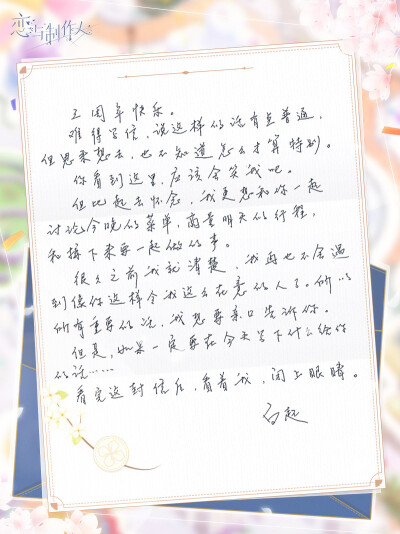 恋与制作人
三周年快乐。
难得写信，说这样的话有点普通，
但思来想去，也不知道怎么才算特别。
你看到这里，应该会笑我吧。
但比起去怀念，我更想和你一起
讨论今晚的菜单，商量明天的行程，
和接下来要一起做的事。
很久之前我就清楚，我再也不会遇
到像你这样令我这么在意的人了。所以
所有重要的话，我想要亲口告诉你。
但是，如果一定要在今天写下什么给你
的话……
看完这封信后，看着我，闭上眼睛。
白起